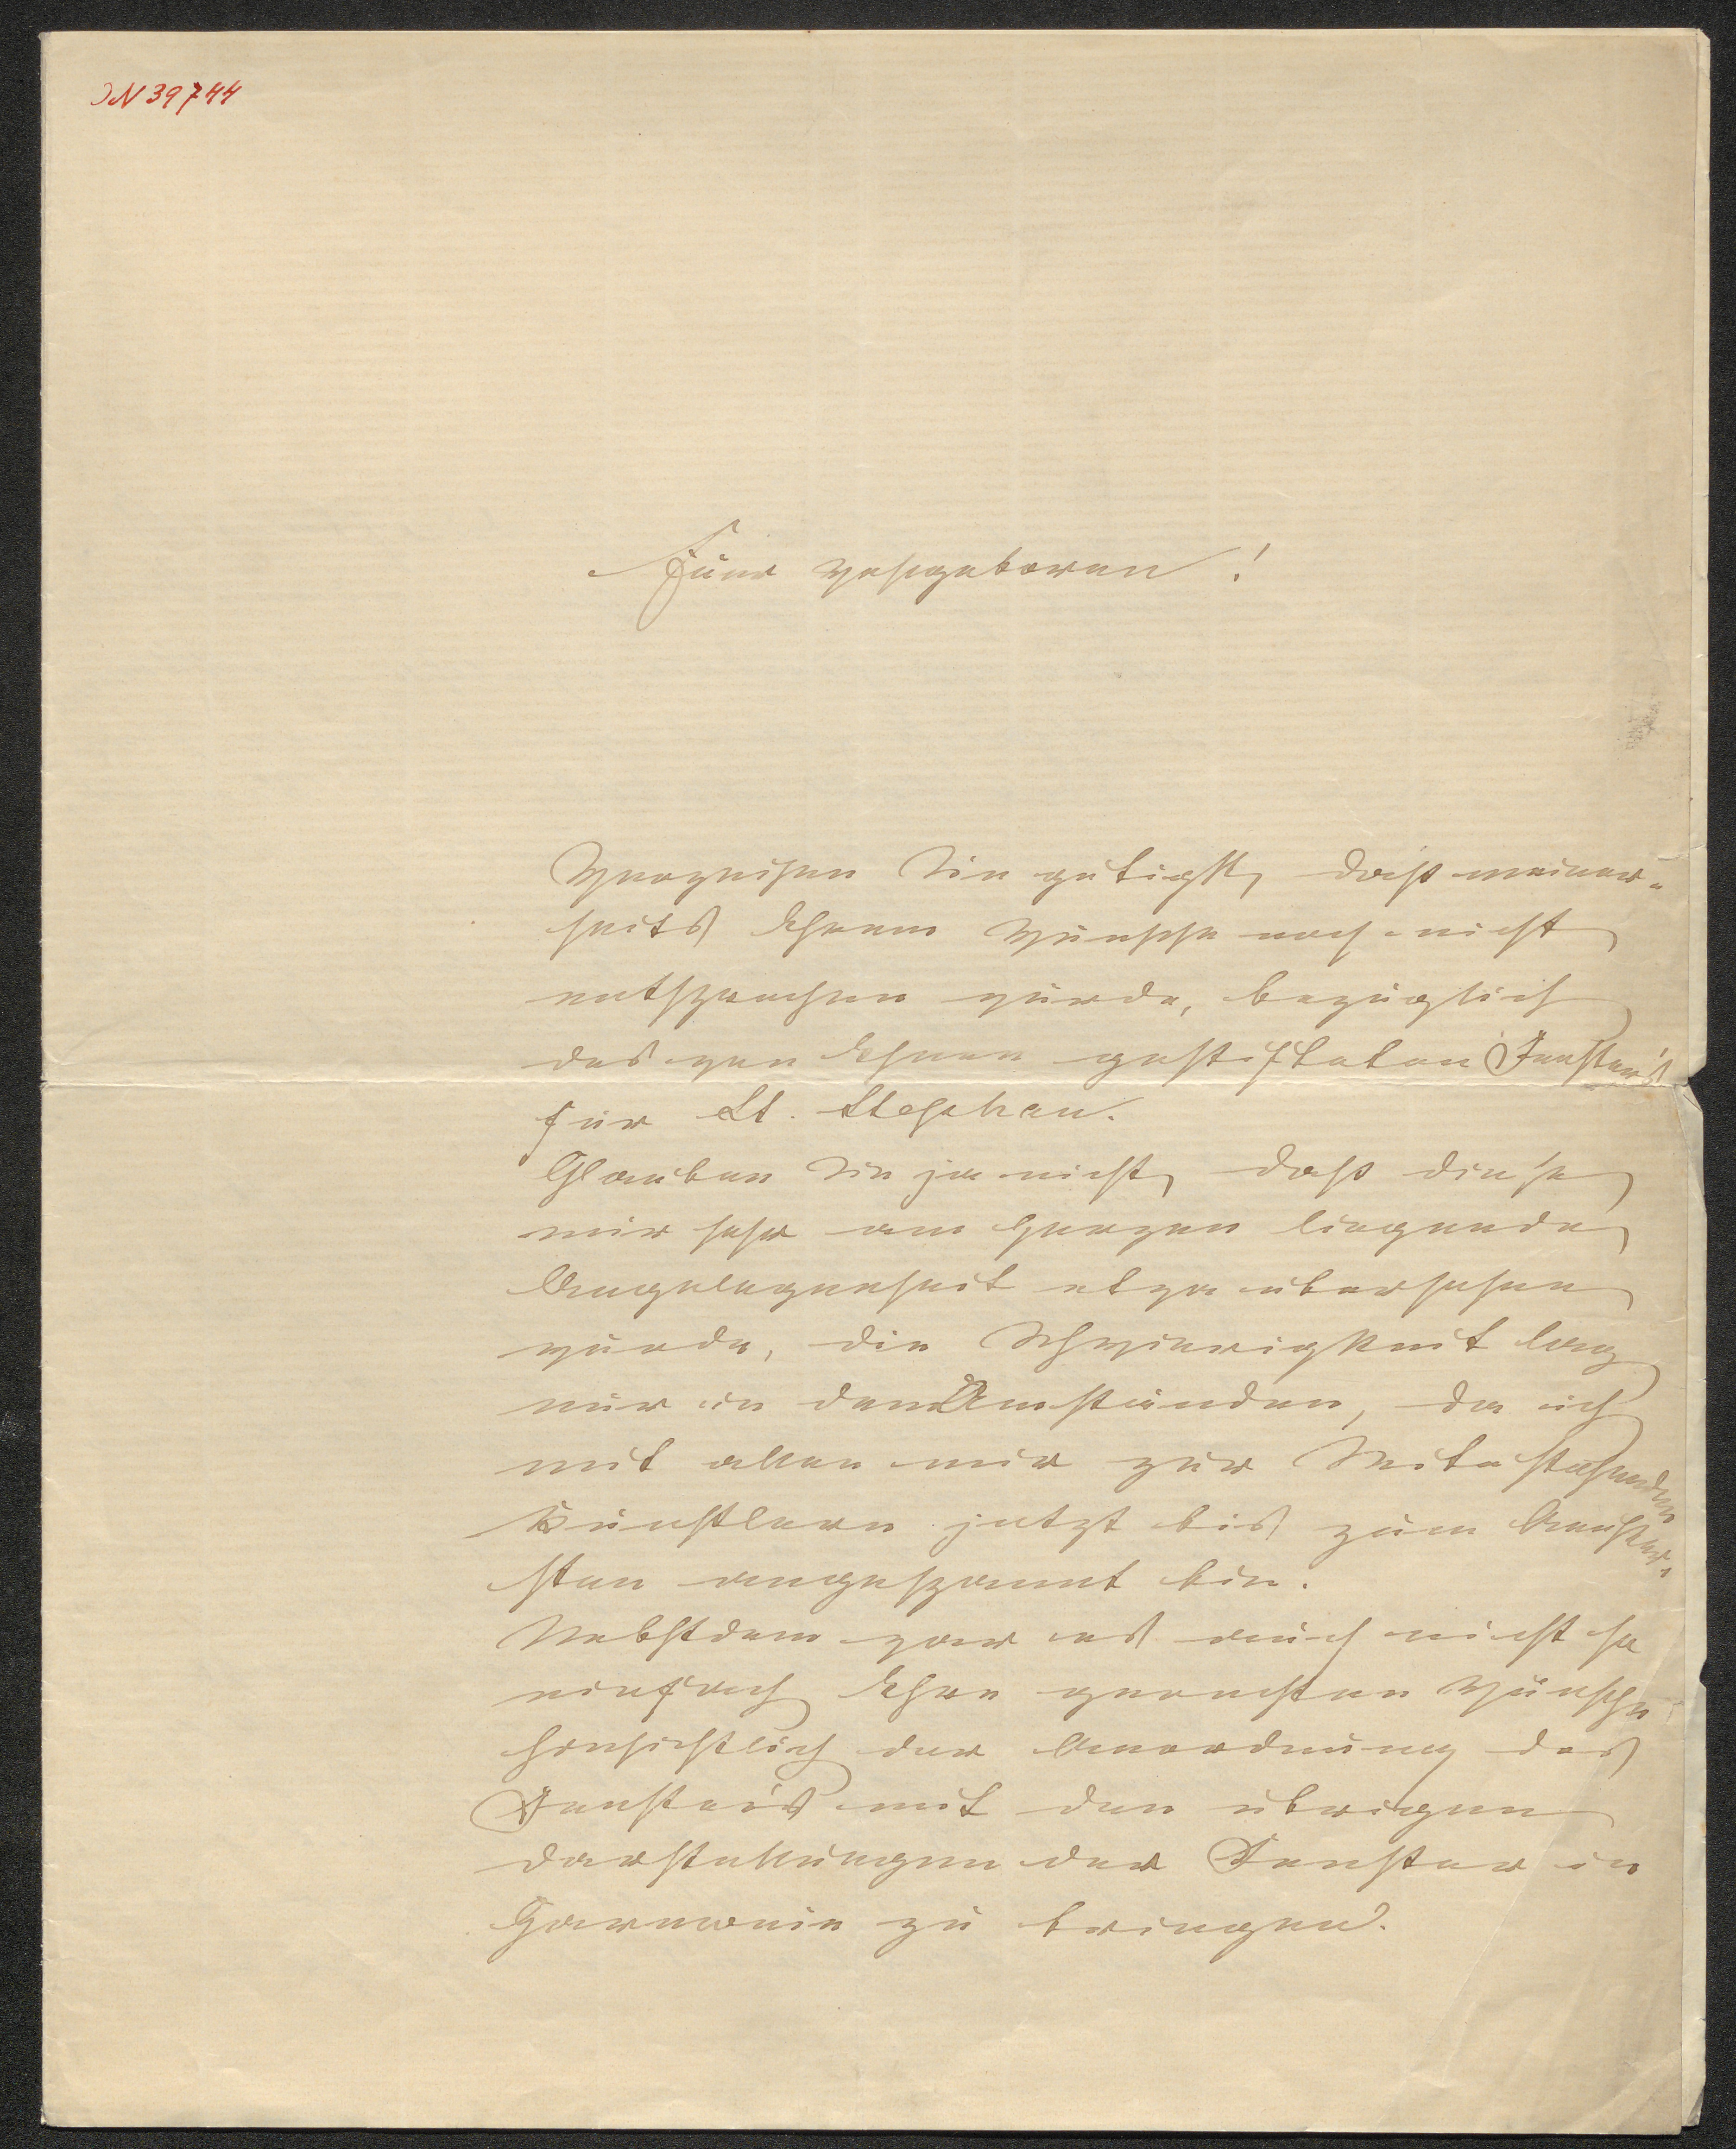 IN 39744
Euer Wohlgeboren!
Verzeihen Sie gütigst, daß meiner-
seits Ihrem Wunsche noch nicht
entsprochen wurde, bezüglich
des von Ihnen gestifteten Fenster's
für St. Stephan.
Glauben Sie ja nicht, daß diese
mir sehr am Herzen liegende
Angelegenheit etwa übersehen
wurde, die Schwierigkeit lag
nur in den Umständen, da ich
mit allen mir zur Seite stehenden
Künstlern jetzt bis zum Aeußer-
sten angespannt bin.
Nebstdem war es auch nicht so
einfach Ihre geehrten Wünsche
hinsichtlich der Anordnung des
Fenster's mit den übrigen
Darstellungen der Fenster in
Harmonie zu bringen.